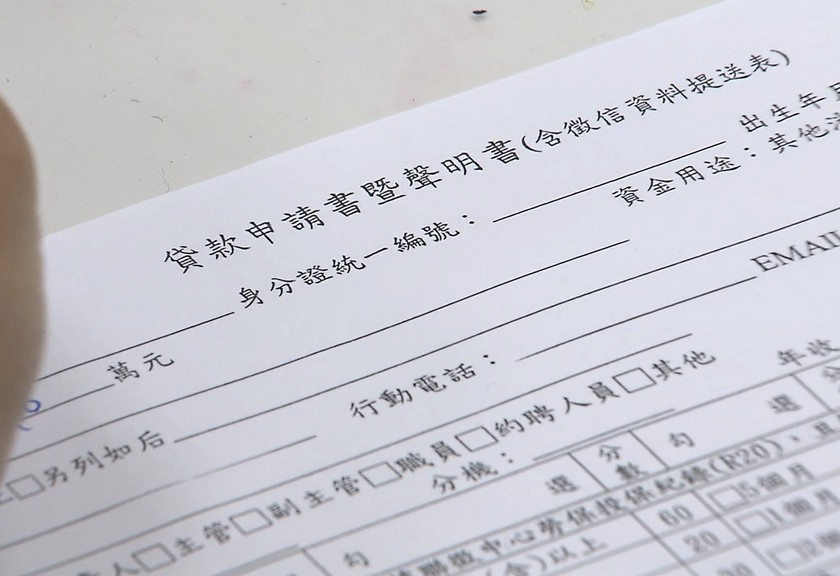 貸款申請書暨聲明書(含徵信資料提送表)
身分證統一編號： 出生年
萬元 資金用途：其他
EMAIL
另列如后 行動電話：
主管 副主管 職員 約聘人員 其他 年收
分機：
勾 選 分數 勾 選
聯徵中心勞保投保紀錄(R20)、且
60 5個月
(含)以上 20 1個月